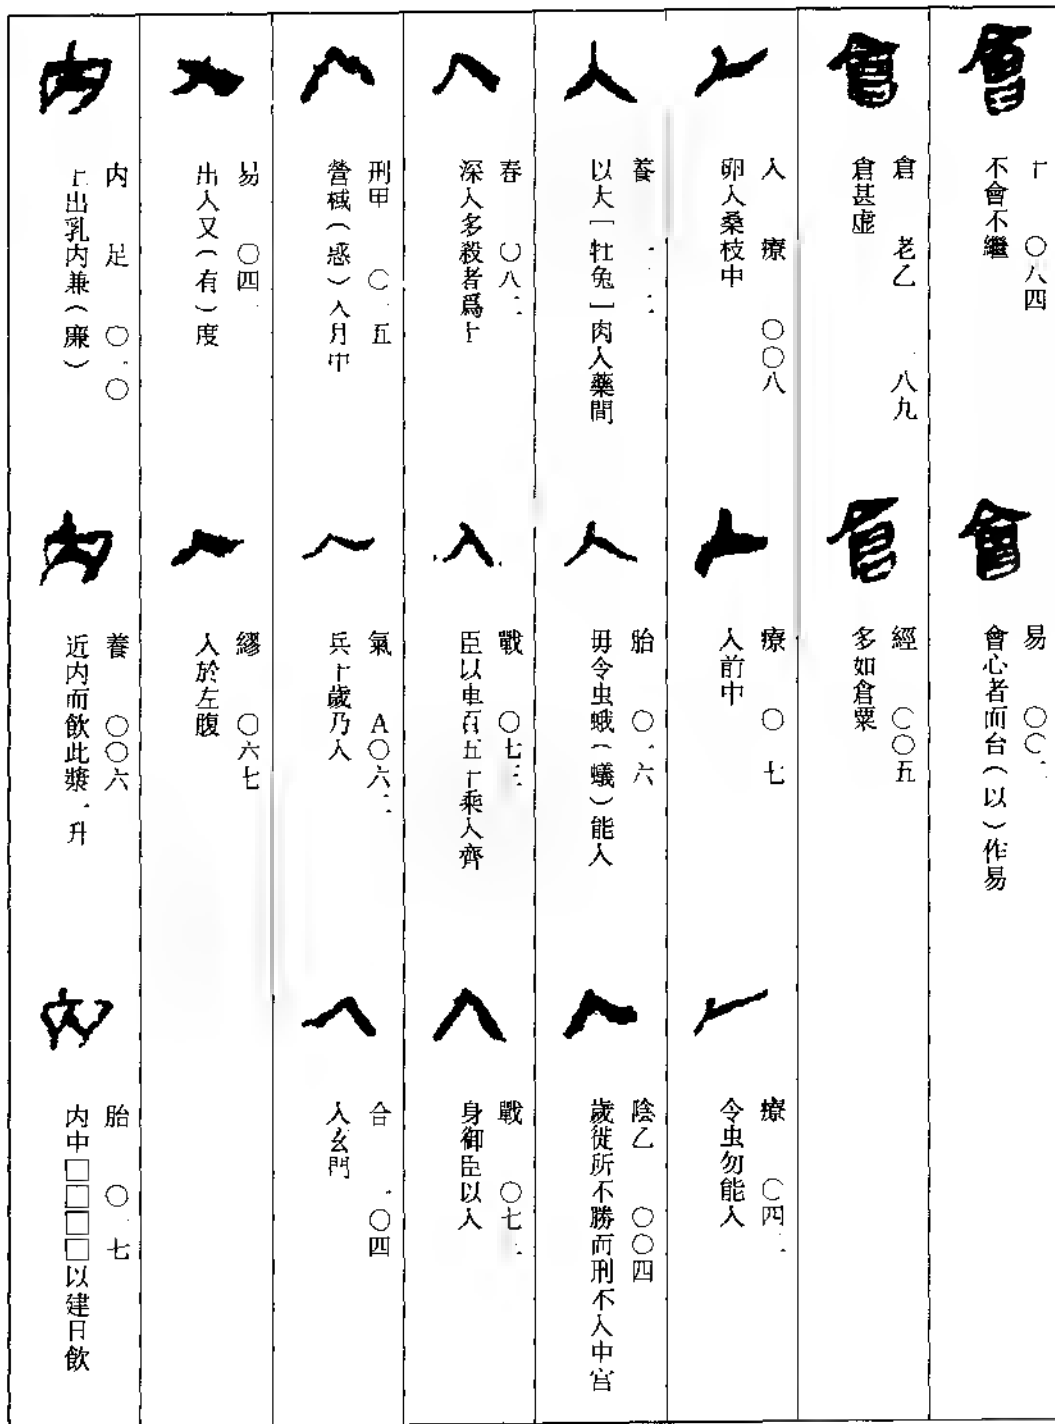 十 〇八四
不會不繼
易 〇〇
會心者而台（以）作易
倉 老乙 八九
倉甚虛
經 〇〇五
多如倉粟
入 療 〇〇八
卵入桑枝中
療 〇 七
入前中
療 〇四
令虫勿能入
養
以大［牡兔］肉入藥間
胎 〇 六
毋令虫蛾（蟻）能入
陰乙 〇〇四
歲徙所不勝而刑不入中宮
春 〇八
深入多殺者爲上
戰 〇七三
臣以車百五十乘入齊
戰 〇七
身御臣以入
刑甲 〇 五
營惑（惑）入月中
氣 A〇六
兵十歲乃入
合 一〇四
入玄門
易 〇四
出入又（有）度
繆 〇六七
入於左腹
内 足 〇 〇
上出乳内兼（廉）
養 〇〇六
近内而飲此漿一升
胎 〇 七
内中□□□□以建日飲